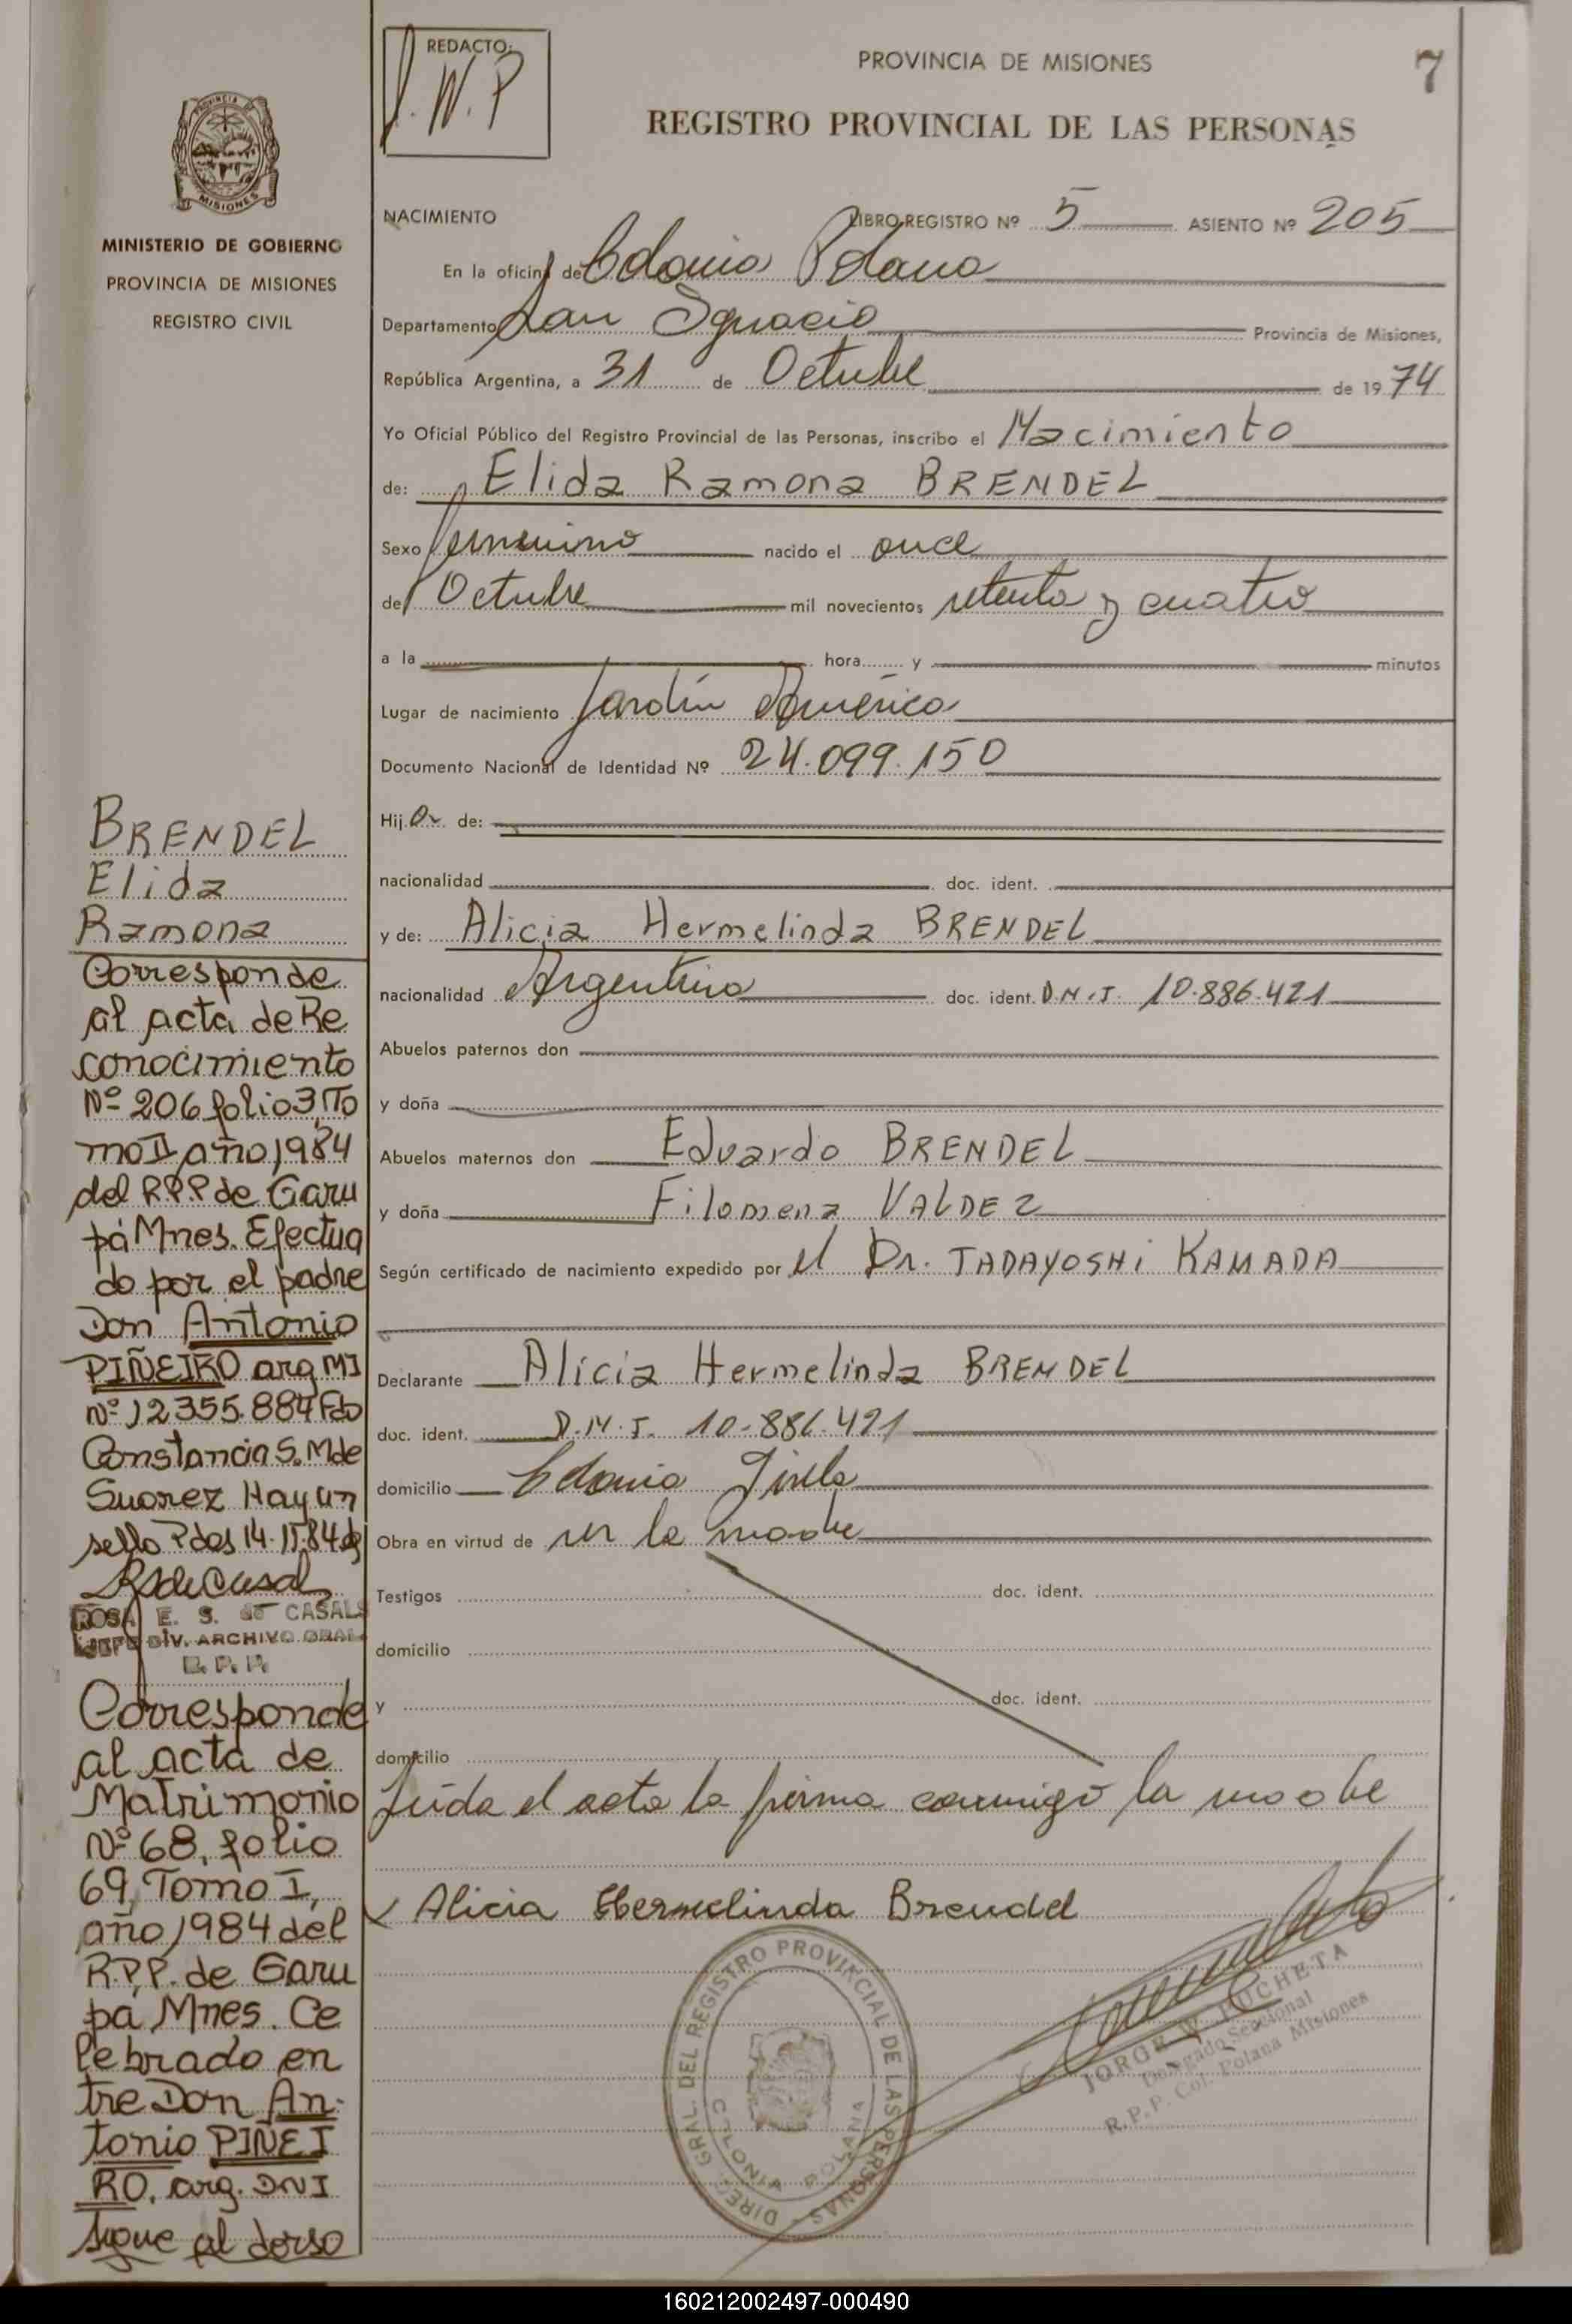 REDACTO:
J. W. P
PROVINCIA DE MISIONES
7
REGISTRO PROVINCIAL DE LAS PERSONAS
PROVINCIA DE
MISIONES
MINISTERIO DE GOBIERNO
PROVINCIA DE MISIONES
REGISTRO CIVIL
NACIMIENTO LIBRO REGISTRO Nº 5 ASIENTO Nº 205
En la oficina de Colonia Polana
Departamento San Ignacio Provincia de Misiones,
República Argentina, a 31 de Octubre de 1974
Yo Oficial Público del Registro Provincial de las Personas, inscribo el Nacimiento
de: Elida Ramona BRENDEL
Sexo femenino nacido el once
de Octubre mil novecientos setenta y cuatro
a la hora y minutos
Lugar de nacimiento Jardín América
Documento Nacional de Identidad Nº 24.099.150
Hija de:
nacionalidad doc. ident.
y de: Alicia Hermelinda BRENDEL
nacionalidad Argentina doc. ident. D.N.I. 10.886.421
Abuelos paternos don
y doña
Abuelos maternos don Eduardo BRENDEL
y doña Filomena VALDEZ
Según certificado de nacimiento expedido por el Dr. TADAYOSHI KAMADA
Declarante Alicia Hermelinda BRENDEL
doc. ident. D.N.I. 10.886.421
domicilio Colonia Gisela
Obra en virtud de ser la madre
Testigos doc. ident.
domicilio
y doc. ident.
domicilio
Leida el acta la firma conmigo la madre
Alicia Hermelinda Brendel
DIREC. GRAL. DEL REGISTRO PROVINCIAL DE LAS PERSONAS
COLONIA POLANA
JORGE W. PUCHETA
Delegado Seccional
R.P.P. Col. Polana Misiones
BRENDEL
Elida
Ramona
Corresponde
al acta de Re
conocimiento
Nº 206 folio 3, To
mo II año 1984
del R.P.P de Garu
pá Mnes. Efectua
do por el padre
Don Antonio
PIÑEIRO arg MI
Nº 12355.884 Fdo
Constancia S. M de
Suarez Hay un
sello Pdas 14.11.84
ROSA E. S. de CASALS
JEFE DIV. ARCHIVO GRAL
R. P. P.
Corresponde
al acta de
Matrimonio
Nº 68, folio
69, Tomo I,
año 1984 del
R.P.P. de Garu
pa, Mnes. Ce
lebrado en
tre Don An-
tonio PIÑEI
RO, arg. DNI
sigue al dorso
160212002497-000490